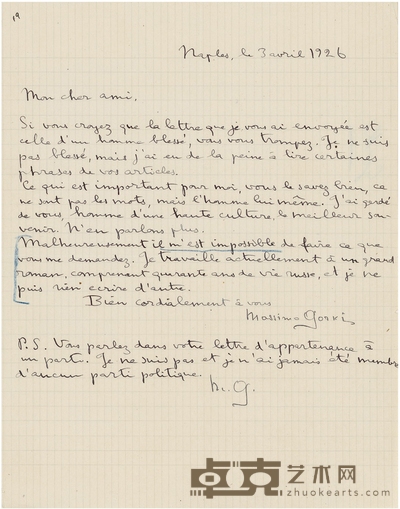 19
Naples, le 3 avril 1926
Mon cher ami,
Si vous croyez que la lettre que je vous ai envoyée est
celle d'un homme blessé, vous vous trompez. Je ne suis
pas blessé, mais j'ai eu de la peine à lire certaines
phrases de vos articles.
Ce qui est important pour moi, vous le savez bien, ce
ne sont pas les mots, mais l'homme lui même. J'ai gardé
de vous, homme d'une haute culture, le meilleur sou-
venir. N'en parlons plus.
Malheureusement il m'est impossible de faire ce que
vous me demandez. Je travaille actuellement à un grand
roman, comprenant quarante ans de vie russe, et je ne
puis rien ecrire d'autre.
Bien cordialement à vous
Massimo Gorki
P.S. Vous parlez dans votre lettre d'appartenance à
un parti. Je ne suis pas et je n'ai jamais été membre
d'aucun parti politique.
M. G.
卓克艺术网
zhuokearts.com